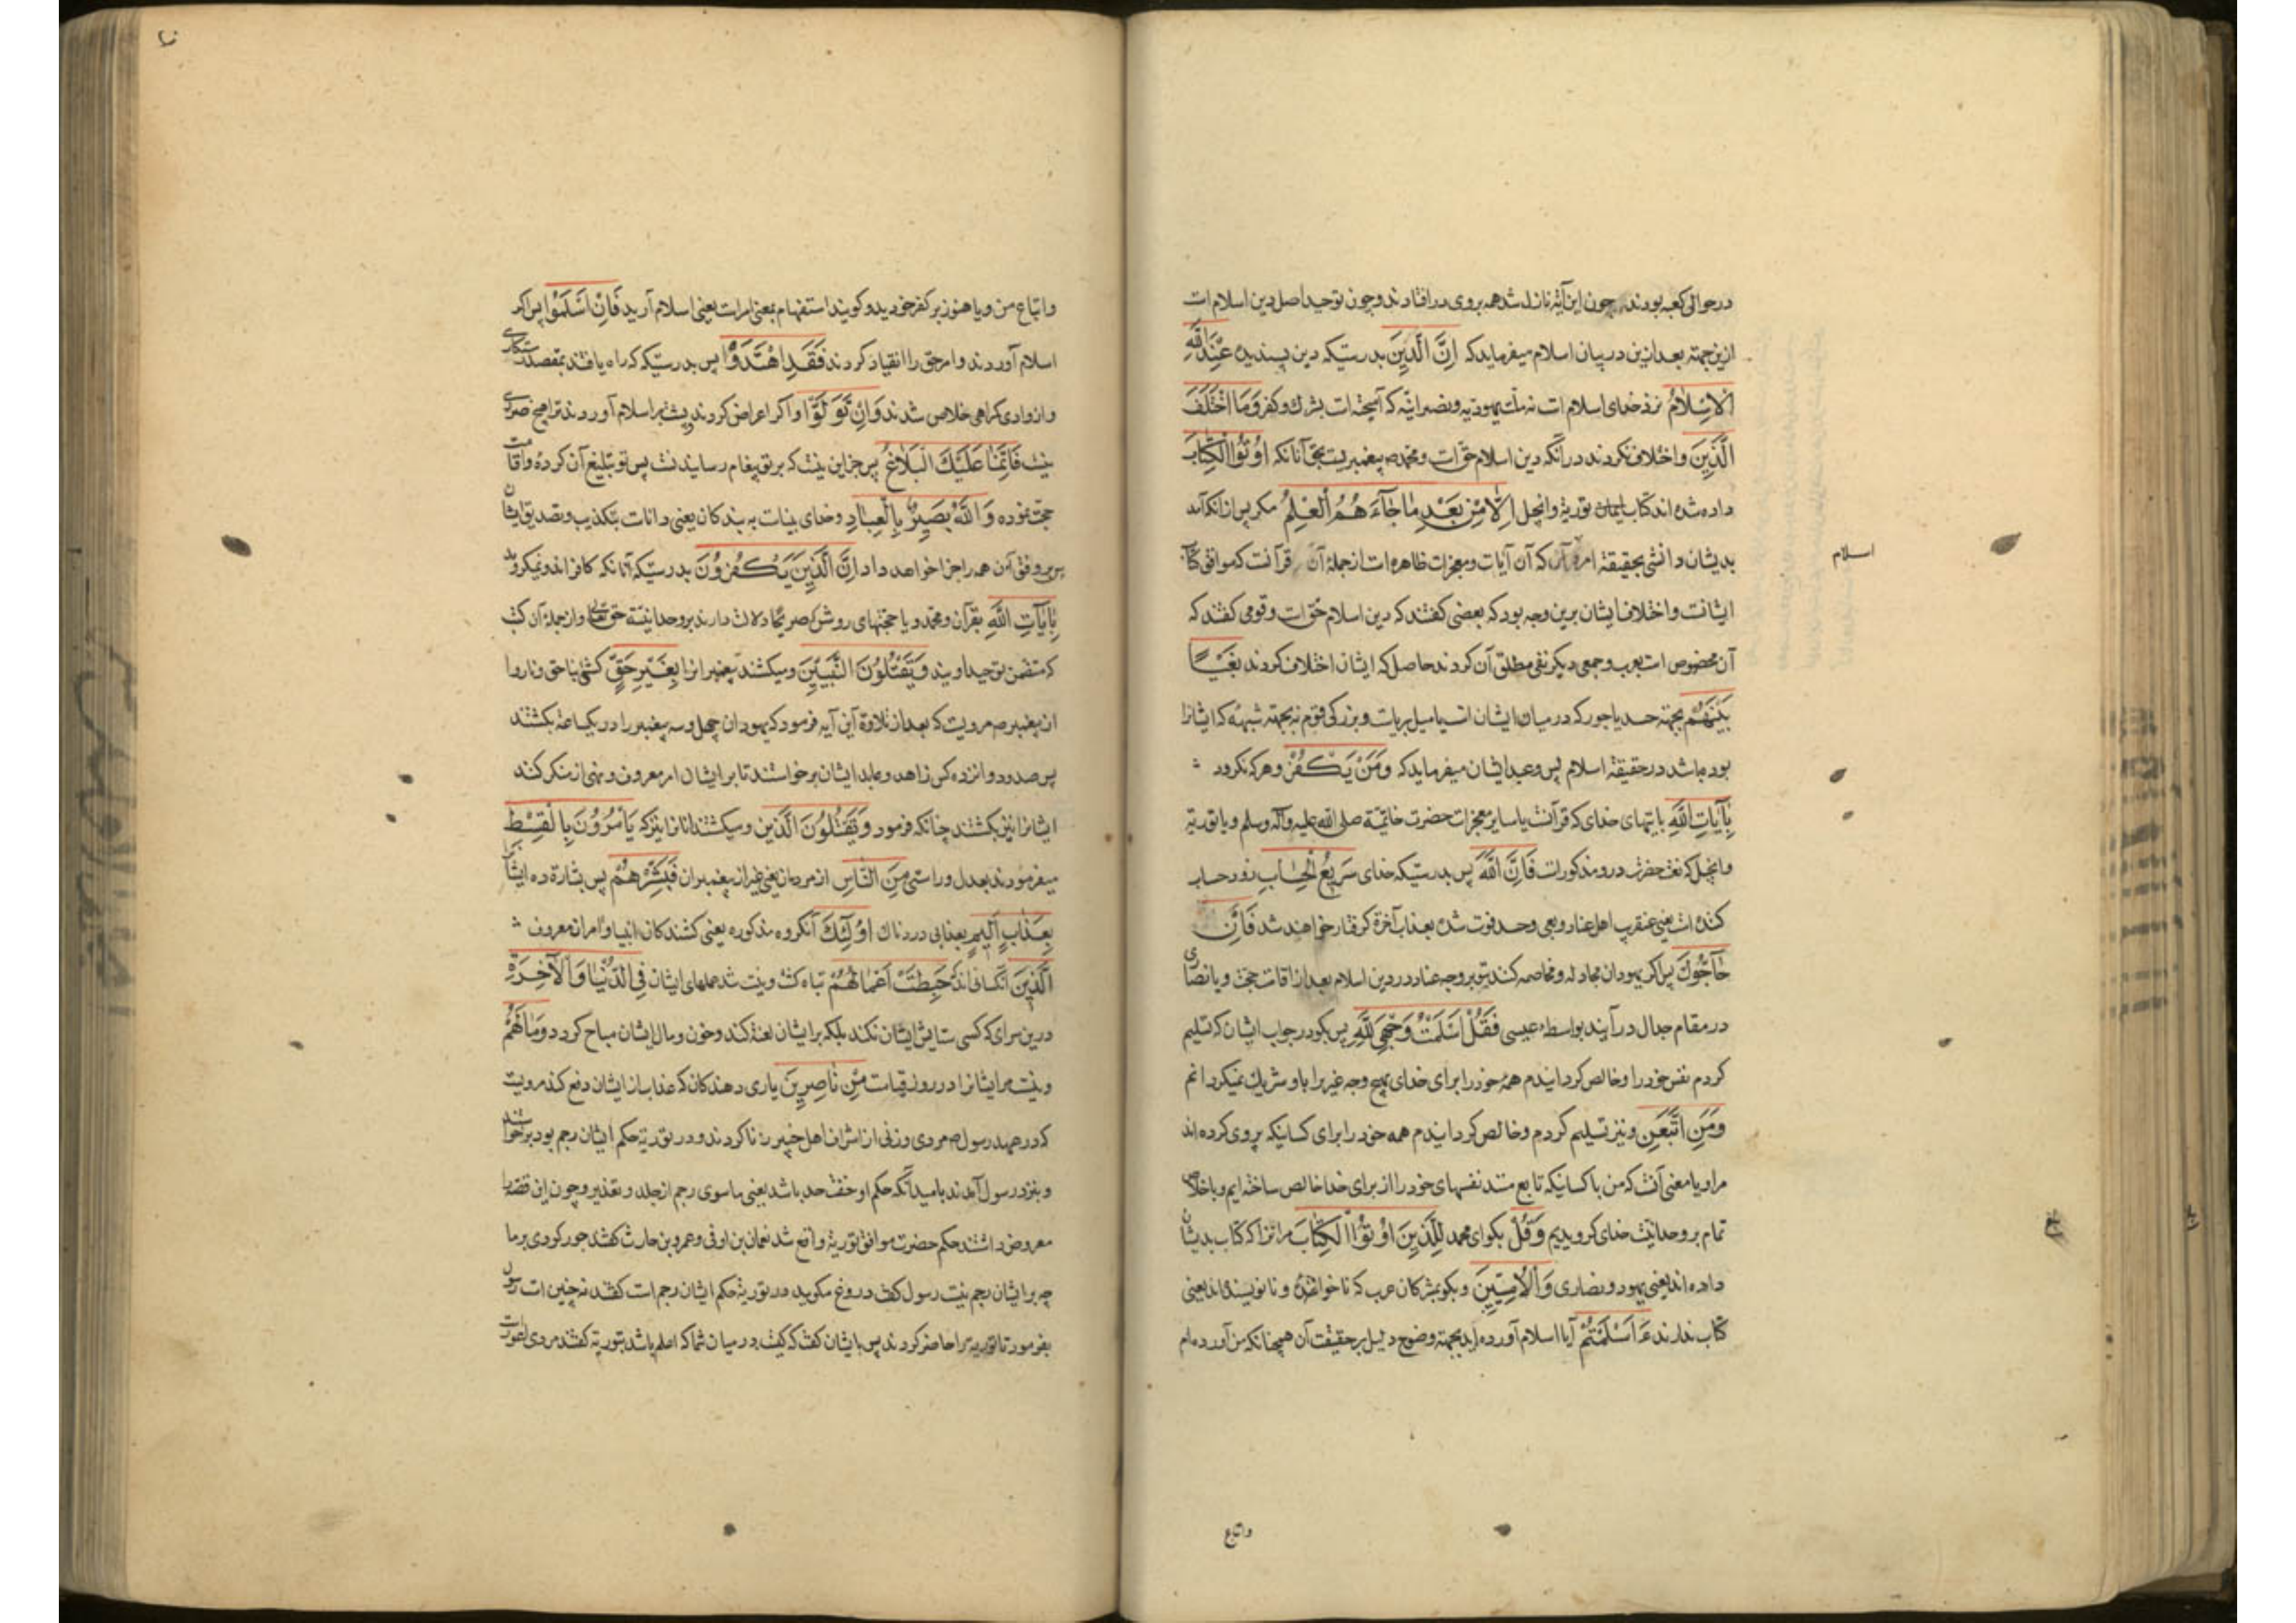 در حوالی کعبه بودند چون این آیة نازل شد همه بروی در افتادند و چون توحید اصل دین اسلام است
ازین جهة بعد ازین در بیان اسلام میفرماید که اِنَّ الَّدینَ بدرستیکه دین پسندیده عِنْدَ اللَّهِ
اَلاِسْلاٰمُ نزد خدای اسلام است نه ملت یهودیه و نصرانیّه که آمیخته است بشرک و کفر وَمَا اخْتَلَفَ
الَّذینَ و اختلاف نکردند در آنکه دین اسلام حق است و محمد ص پیغمبریست بحق آنانکه اُوْتُوا الْکِتٰابَ
داده شده اند کتاب توریة و انجیل اِلّٰا مِنْ بَعْدِ مٰا جٰاۤءَهُمُ الْعِلْمُ مگر پس از آنکه آمد
بدیشان دانشی بحقیقة امر و آن که آن آیات و معجزات ظاهره است از جملهٔ آن قرآنست که موافق کتاب
اسلام
ایشانست و اختلاف ایشان برین وجه بود که بعضی گفتند که دین اسلام حق است و قومی گفتند که
آن مخصوص است بعرب و جمعی دیگر نفی مطلق آن کردند حاصل که ایشان اختلاف کردند بَغْیًا
بَیْنَهُمْ بجهة حسد یا جور که در میان ایشان است یا میل بریاست و بزرگی قوم نه بجهة شبهه که ایشانرا
بوده باشد در حقیقة اسلام پس وعید ایشان میفرماید که وَمَنْ یَکْفُرْ و هر که نگرود
بِآیٰاتِ اللّٰهِ بآیتهای خدای که قرآنست یا سایر معجزات حضرت خاتمیّة صلی الله علیه وآله وسلم و یا توریة
و انجیل که نعت حضرت درو مذکور است فَاِنَّ اللّٰهَ پس بدرستیکه خدای سَرِیعُ الْحِسٰابِ زود حساب
کننده است یعنی عنقریب اهل عناد و بغی و حسد فوت شده بعذاب آخرة گرفتار خواهند شد فَاِنْ
حٰاۤجُّوكَ پس اگر یهودان مجادله و مخاصمه کنند بتو بر وجه عناد در دین اسلام بعد از اقامت حجت و یا نصاری
در مقام جدال در آیند بواسطهٔ عیسی فَقُلْ اَسْلَمْتُ وَجْهِیَ لِلّٰهِ پس بگو در جواب ایشان که تسلیم
کردم نفس خود را و خالص گردانیدم همهٔ خود را برای خدای بهیچ وجه غیر را با او شریک نمیگردانم
وَمَنِ اتَّبَعَنِ و نیز تسلیم کردم و خالص گردانیدم همه خود را برای کسانیکه پیروی کرده اند
مرا و یا معنی آنست که من با کسانیکه تابع منند نفسهای خود را از برای خدا خالص ساخته ایم و باخلاص
تمام بر وحدانیّت خدای گرویدیم وَقُلْ بگو ای محمد لِلَّذِینَ اُوْتُوا الْکِتٰابَ مر آنرا که کتاب بدیشان
داده اند یعنی یهود و نصاری وَالْاُمِّیّینَ و بگو بمشرکان عرب که ناخوانده و نانویسنده اند یعنی
کتاب ندارند ءَ اَسْلَمْتُمْ آیا اسلام آورده اید بجهة وضوح دلیل بر حقیقت آن همچنانکه من آورده ام
واتباع
واتباع من و یا هنوز بر کفر خودید و گویند استفهام بمعنی امر است یعنی اسلام آرید فَاِنْ اَسْلَمُوْا پس اگر
اسلام آوردند و امر حق را انقیاد کردند فَقَدِ اهْتَدَوْا پس بدرستیکه که راه یافتند بمقصد رستگاری
و از وادی گمراهی خلاص شدند وَاِنْ تَوَلَّوْا و اگر اعراض کردند و پشت بر اسلام آوردند ترا هیچ ضرری
نیست فَاِنَّمٰا عَلَیْكَ الْبَلٰاغُ پس جز این نیست که بر تو پیغام رسانیدنست پس تو تبلیغ آن کردهٔ و اقامت
حجت نموده وَاللّٰهُ بَصیرٌ بِالْعِبٰادِ و خدای بیناست به بندگان یعنی داناست بتکذیب و تصدیق ایشان
پس بر وفق آن همه را جزا خواهد داد اِنَّ الَّذینَ یَکْفُرُوْنَ بدرستیکه آنانکه کافرانند و نمیگروند
بِاٰیٰاتِ اللّٰهِ بقرآن و محمد و یا حجتهای روشن که صریحًا دلالت دارند بر وحدانیّة حق تعالی و از جملهٔ آن کتب
که متضمن توحید اویند وَیَقْتُلُوْنَ النَّبیّینَ و میکشند پیغمبرانرا بِغَیْرِ حَقٍّ کشتنی ناحق و ناروا
از پیغمبر ص مرویست که بعد از تلاوة این آیه فرمود که یهودان چهل و سه پیغمبر را در یکساعة بکشتند
پس صد و دوازده کس زاهد و عابد ایشان برخواستند تا بر ایشان امر معروف و نهی از منکر کنند
ایشانرا نیز بکشتند چنانکه فرمود وَیَقْتُلُوْنَ الَّذین و میکشتند آنانرا نیز که یَاْمُرُوْنَ بِالْقِسْطِ
میفرمودند بعدل و راستی مِنَ النّٰاسِ از مردمان یعنی غیر از پیغمبران فَبَشِّرْهُمْ پس بشارة ده ایشانرا
بِعَذٰابٍ اَلیمٍ بعذابی دردناک اُوْلٰۤئِكَ آنگروه مذکوره یعنی کشندگان انبیا و آمران معروف
الَّذِینَ آنکسانی اند که حَبِطَتْ اَعْمٰالُهُمْ تباه گشت و نیست شد عملهای ایشان فِی الدُّنْیٰا وَالْاٰخِرَةِ
درین سرای که کسی ستایش ایشان نکند بلکه بر ایشان لعنة کند و خون و مال ایشان مباح گردد وَمٰا لَهُمْ
و نیست مر ایشانرا در روز قیامت مِنْ نٰاصِرینَ یاری دهندگان که عذاب از ایشان دفع کند مرویست
که در عهد رسول ص مردی و زنی از اشراف اهل خیبر زنا کردند و در توریة حکم ایشان رجم بود برخواستند
و بنزد رسول آمدند بامید آنکه حکم او اخف حد باشد یعنی ماسوی رجم از جلد و تعذیر و چون این قصه را
معروض داشتند حکم حضرت موافق توریة واقع شد نعمان بن اوفی و عمرو بن حارث گفتند جور کردی بر ما
چه بر ایشان رجم نیست رسول گفت دروغ مگویید در توریة حکم ایشان رجم است گفتند نه چنین است رسول
بفرمود تا توریة را حاضر کردند پس بایشان گفت که کیست در میان شما که اعلم باشد بتوریة گفتند مردی اعور است